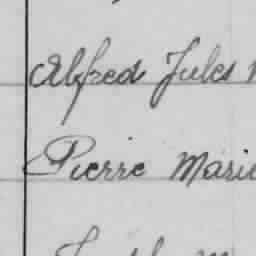 Alfred Jules
Pierre Marie